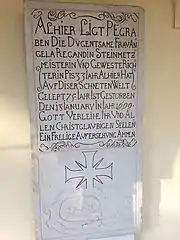 ALHIER LIGT PEGRA
BEN DIE DUGENTSAME FRAU AN
GELA REGANDIN STEINMETZ
MEISTERIN VND GEWESTE RICH
TERIN PIS 33 IAHR ALHIER HAT
AUF DISER SCHNETEN WELT
GELEPT 75 IAHR IST GESTORBEN
DEN 13 IANUARY IM IAHR
GOTT VERLEIHE IHR VND AL
LEN CHRISTGLAUBIGEN SEELEN
EIN FRELIGE AUFERSEHUNG AMEN